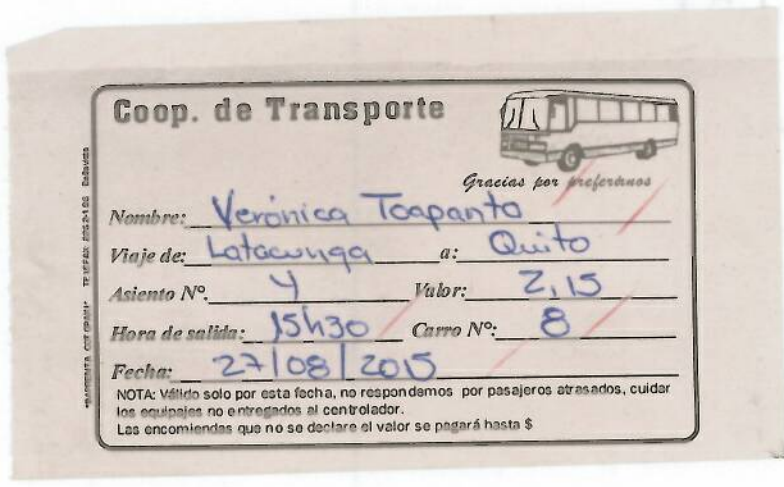 Coop. de Transporte
Gracias por preferirnos
Nombre: Verónica Toapanta
Viaje de: Latacunga a: Quito
Asiento Nº. 4 Valor: 2,15
Hora de salida: 15h30 Carro Nº: 8
Fecha: 27/08/2015
NOTA: Válido solo por esta fecha, no respondemos por pasajeros atrasados, cuidar
los equipajes no entregados al controlador.
Las encomiendas que no se declare el valor se pagará hasta $